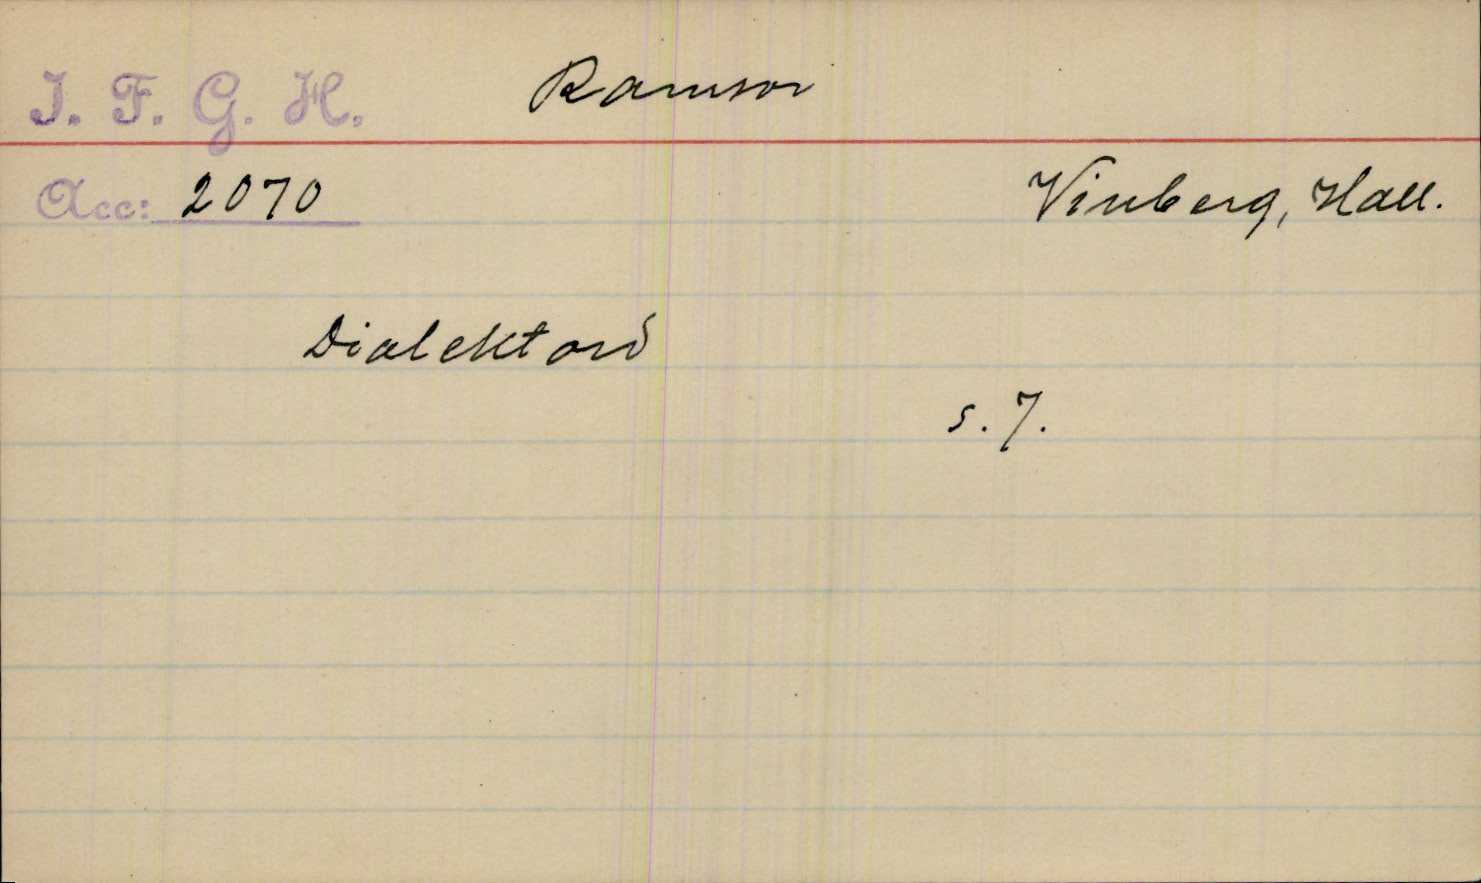 I. F. G. H. Ramsor
Acc: 2070 Vinberg, Hall.
Dialektord
s. 7.